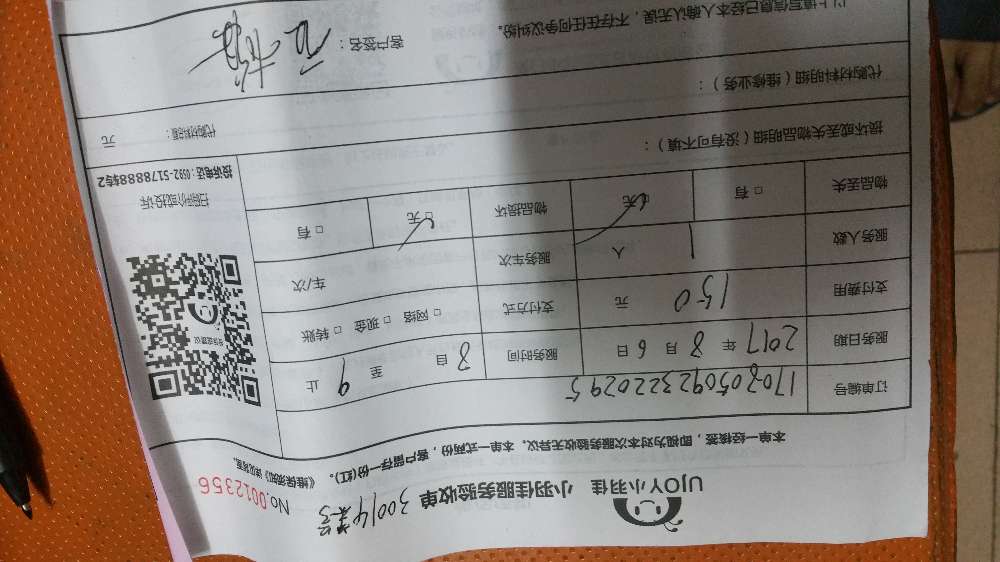 UJOY小羽佳 小羽佳服务验收单
No.0012356
本单一经核签,即视为对本次服务验收无异议。本单一式两份,客户留存一份(红)。
订单编号 170805092322029 5
服务日期 2017 年 8 月 6 日 服务时间 8 自 至 9 止
支付费用 150 元 支付方式 □ 网络 □ 现金 □ 转账
服务人数 1 人 服务车次 车/次
物品丢失 □ 有 □ 无 物品损坏 □ 无 □ 有
扫码评价或投诉
投诉电话:0592-5178888转2
损坏或丢失物品明细(没有可不填):
代购材料明细(维修业务):
代购材料额: 元
以上填写信息已经本人确认无误,不存在任何争议纠纷。
客户签名: